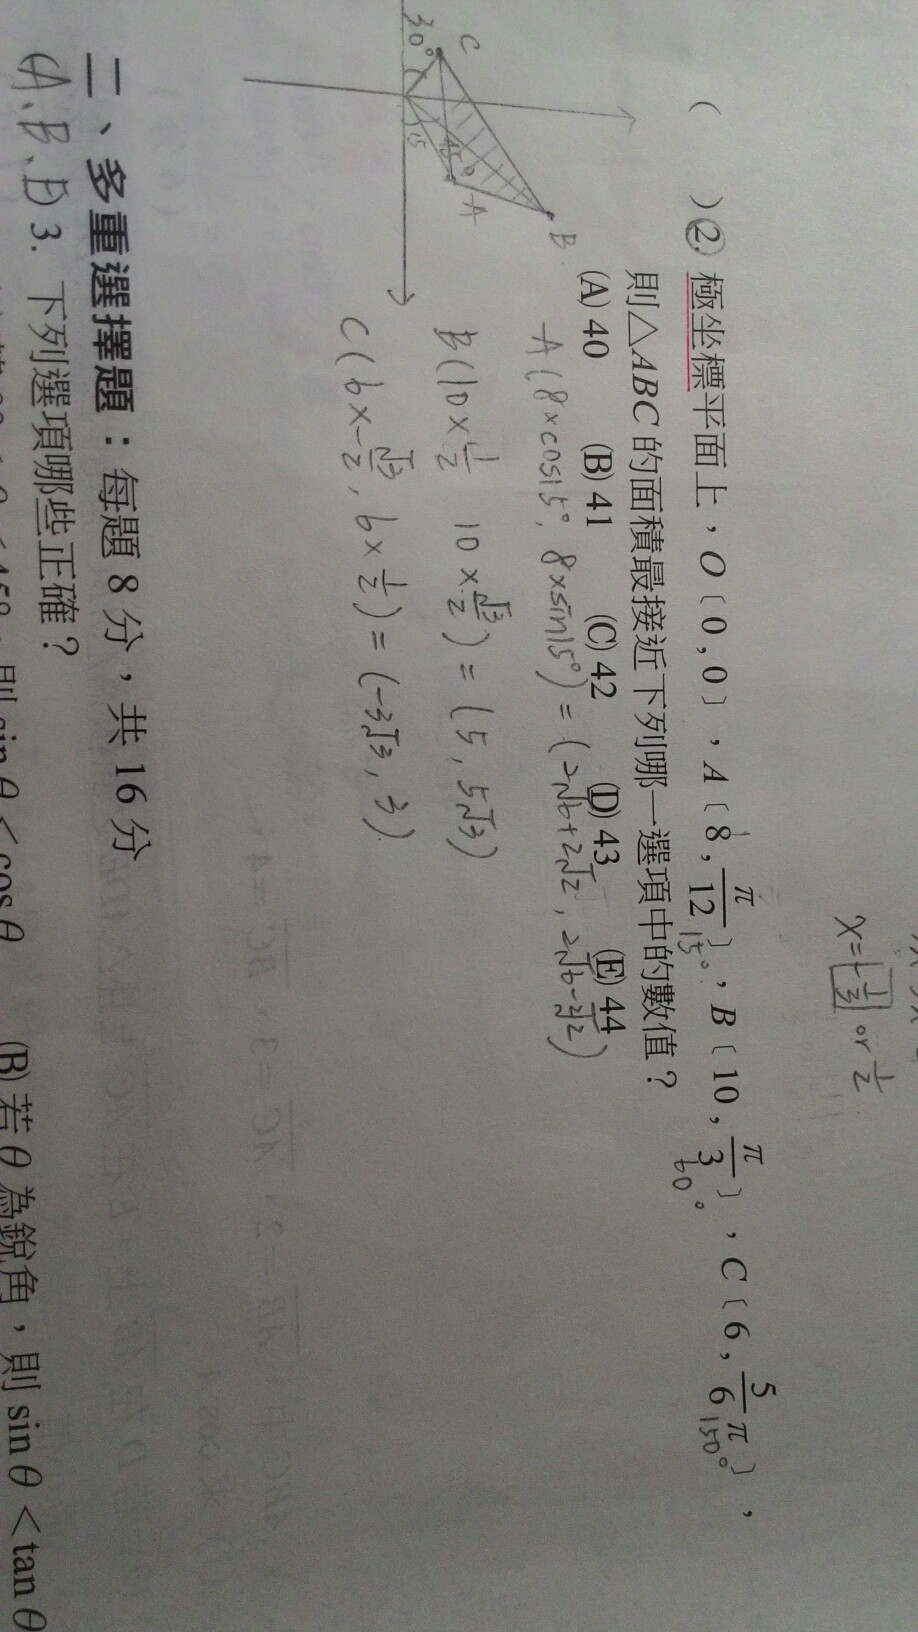 x=-1/3 or 1/2
( )②. 極坐標平面上，O〔0,0〕，A〔8,π/12〕，B〔10,π/3〕，C〔6,5/6π〕，
15° 60° 150°
則△ABC的面積最接近下列哪一選項中的數值？
(A) 40 (B) 41 (C) 42 (D) 43 (E) 44
A(8×cos15°, 8×sin15°)=(2√6+2√2, 2√6-2√2)
B(10×1/2 10×√3/2)=(5, 5√3)
C(6×-√3/2, 6×1/2)=(-3√3, 3)
C
B
A
30°
45°
15
二、多重選擇題：每題 8 分，共 16 分
(A、B、D) 3. 下列選項哪些正確？
則 sinθ<cosθ (B) 若θ為銳角，則 sinθ<tanθ